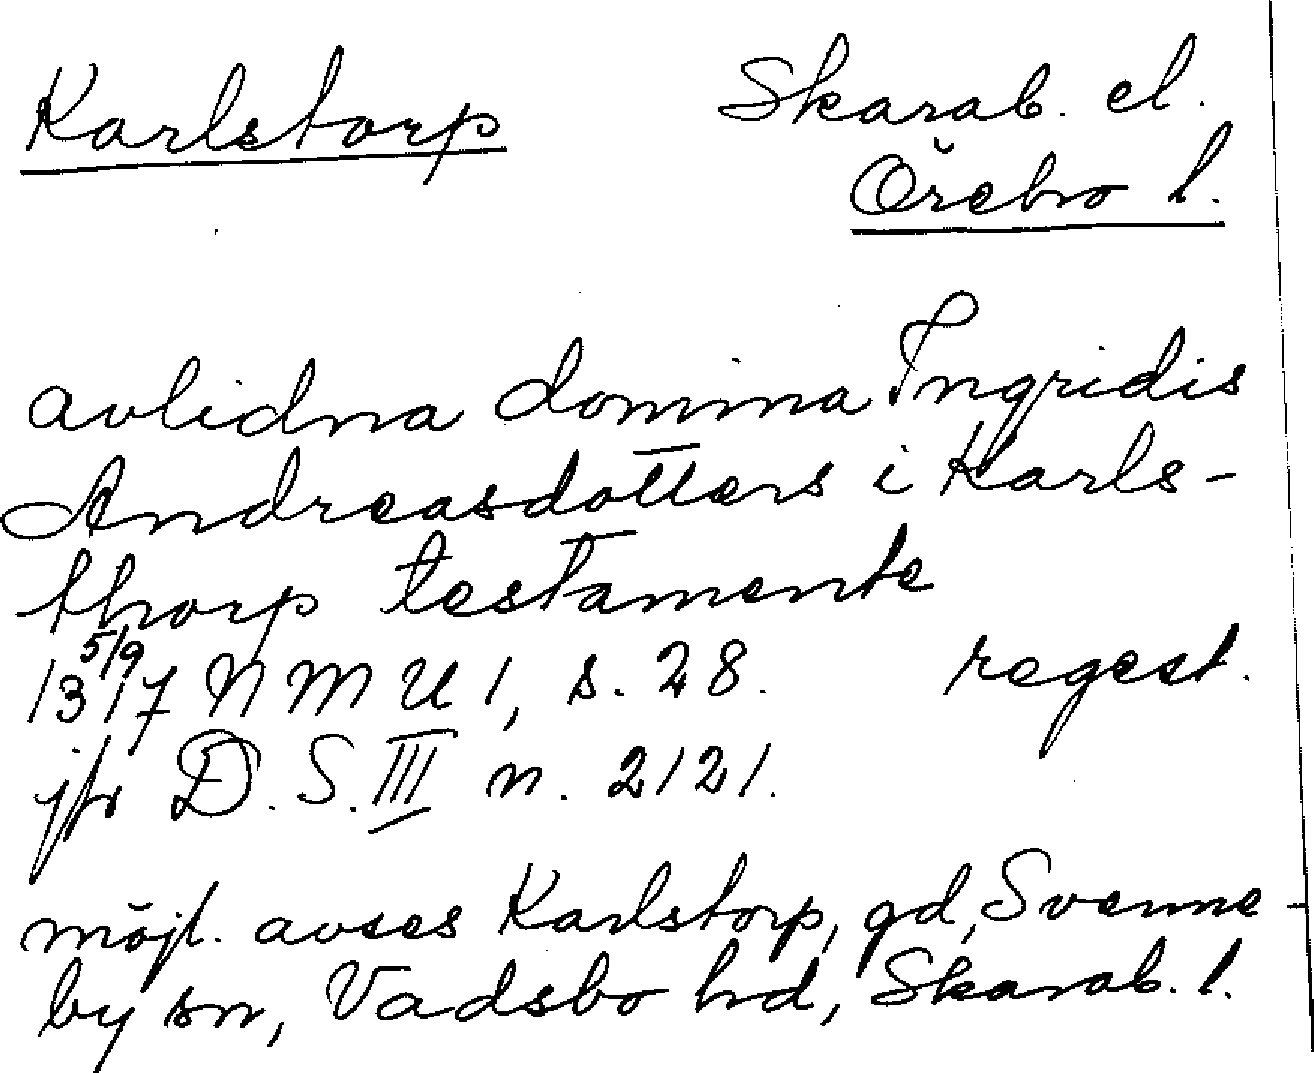 Karlstorp
Skarab. el.
Örebro l.
avlidna domina Ingridis
Andreasdotters i Karls-
thorp testamente
5/9
1317 NMU 1, s. 28. regest.
jfr D. S. III n. 2121.
möjl. avses Karlstorp, gd, Svenne-
by sn, Vadsbo hd, Skarab. l.